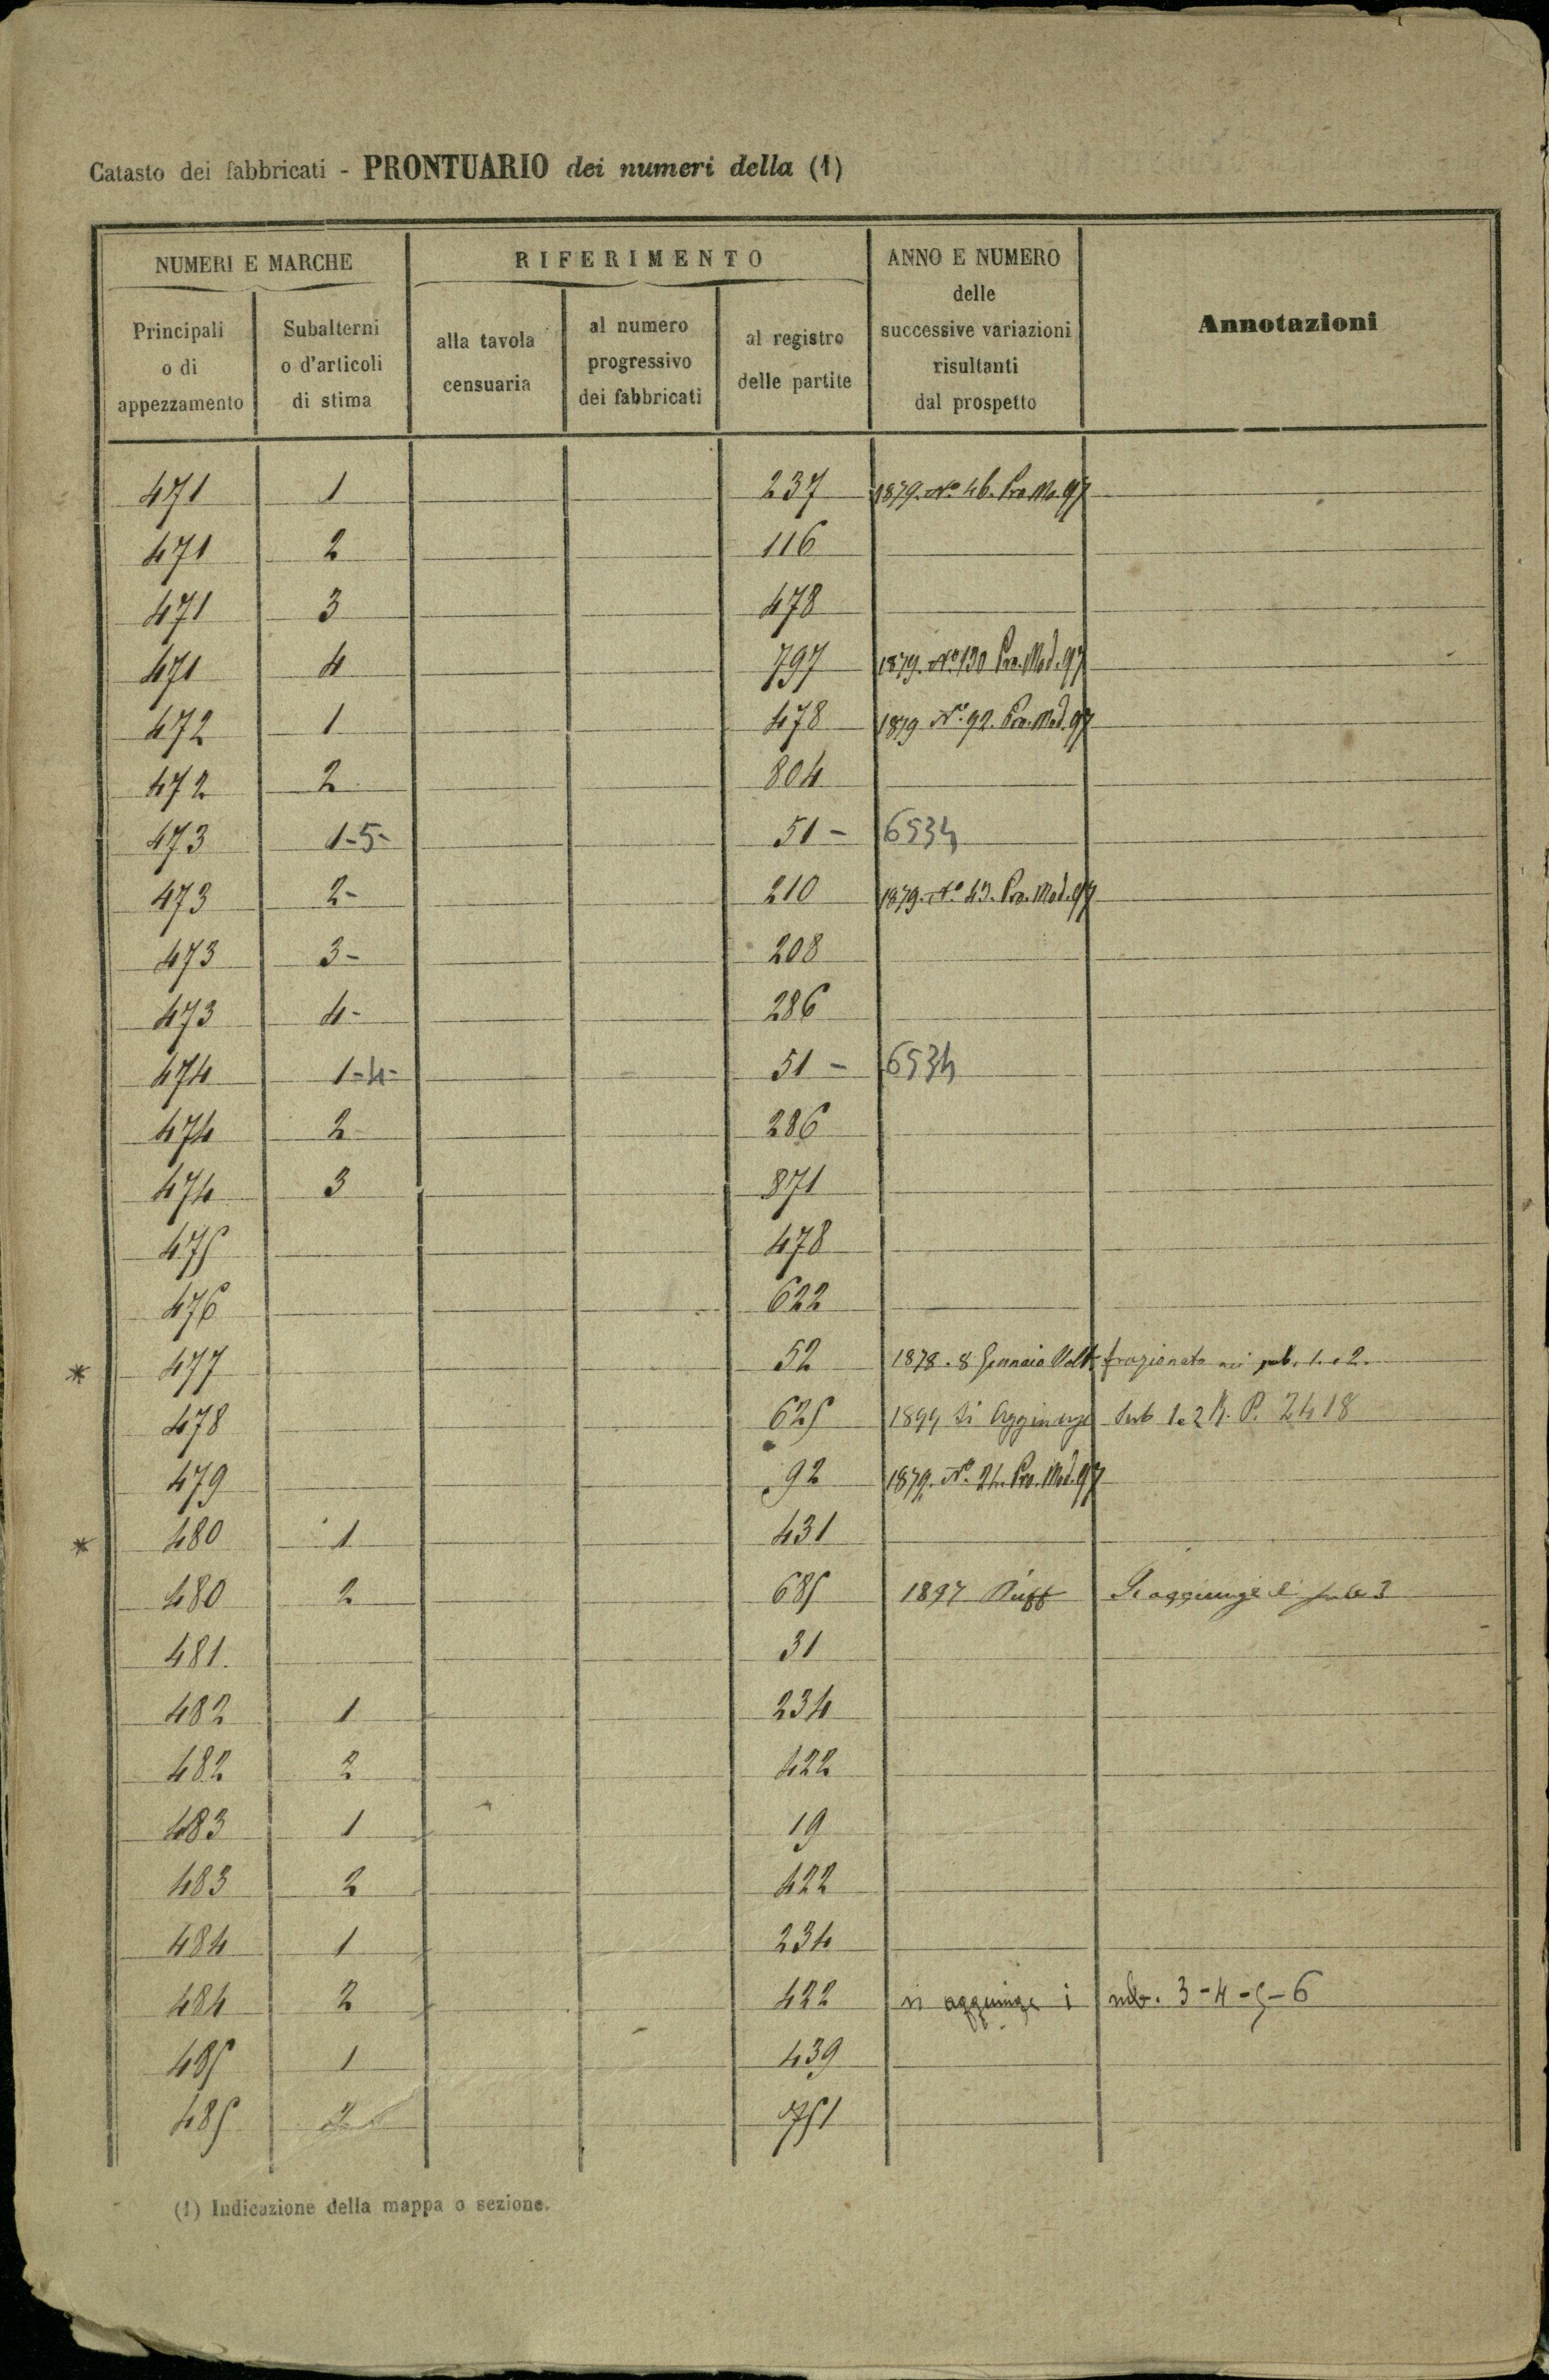 Catasto dei fabbricati - PRONTUARIO dei numeri della (1)
NUMERI E MARCHE
RIFERIMENTO
ANNO E NUMERO delle successive variazioni risultanti dal prospetto
Annotazioni
Principali o di appezzamento
Subalterni o d'articoli di stima
alla tavola censuaria
al numero progressivo dei fabbricati
al registro delle partite
471 1 237 1879. No. 46. Pro. Mo. 97
471 2 116
471 3 478
471 4 797 1879. No. 130 Pro. Mod. 97
472 1 478 1879 No. 92. Pro. Mod. 97
472 2 804
473 1-5- 51 - 6534
473 2- 210 1879. No. 43. Pro. Mod. 97
473 3- 208
473 4- 286
474 1-4- 51 - 6534
474 2 286
474 3 871
475 478
476 622
* 477 52 1878. 8 Gennaio Volt. frazionato nei sub. 1. e 2.
478 625 1899 Si Aggiunge Sub 1 e 2 R. P. 2418
479 92 1879. No. 24. Pro. Mod. 97
* 480 1 431
480 2 685 1897 Si aggiunge il sub 3
481. 31
482 1 234
482 2 422
483 1 19
483 2 422
484 1 234
484 2 422 si aggiunge i sub. 3-4-5-6
485 1 439
485 2 751
(1) Indicazione della mappa o sezione.